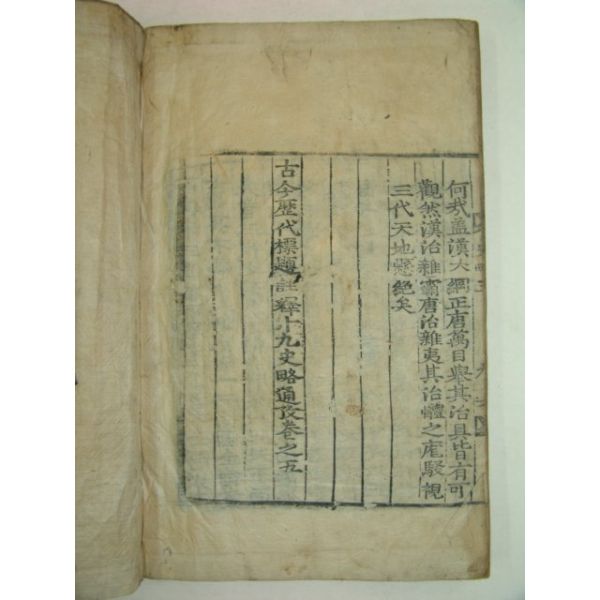 何㢤盖漢大綱正唐萬目舉其治具皆有可
觀然漢治雜霸唐治雜夷其治體之庬駁視
三代天地懸絕矣
古今歷代標題註釋十九史略通攷卷之五